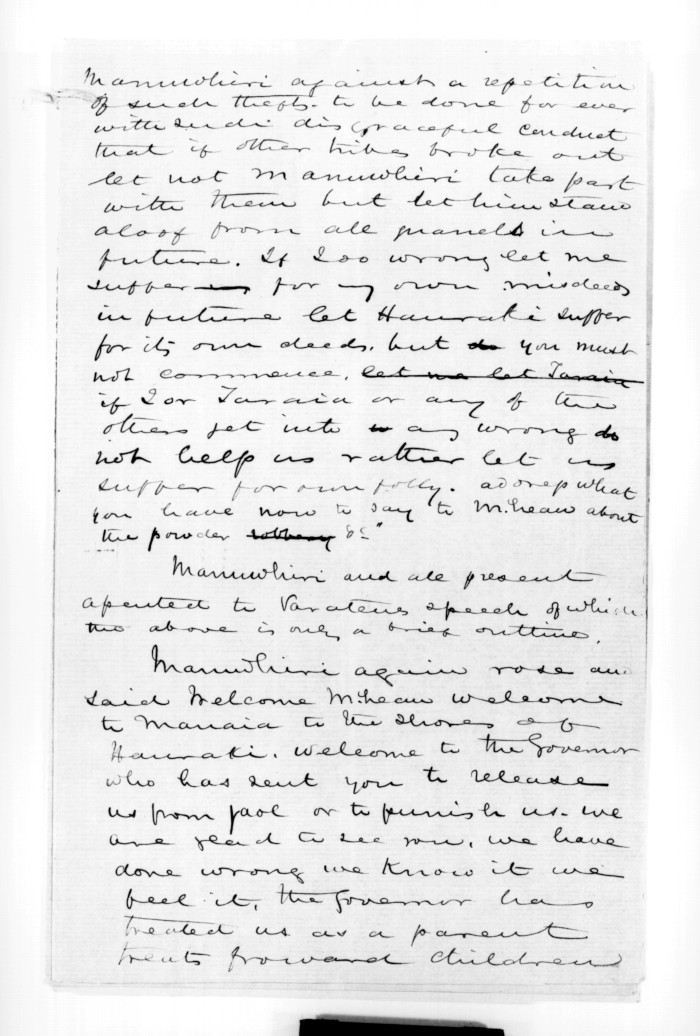 Manuwhiri against a repetition
of such thefts. to be done for ever
with such disgraceful conduct
that if other tribes broke out
let not Manuwhiri take part
with them but let him stand
aloof from all quarrels in
future. If I do wrong let me
suffer for my own misdeeds
in future let Hauraki suffer
for its own deeds. but do you must
not commence. let me let Taraia
if I or Taraia or any of the
others get into any wrong do
not help us rather let us
suffer for own folly. adorep what
you have now to say to McLean about
the powder robbery &c"
Manuwhiri and all present
assented to Paratenes speech of which
the above is only a brief outline.
Manuwhiri again rose and
said Welcome McLean welcome
to Manaia to the shores of
Hauraki. welcome to the Governor
who has sent you to release
us from gaol or to punish us. we
are glad to see you, we have
done wrong we know it we
feel it, the Governor has
treated us as a parent
treats froward children